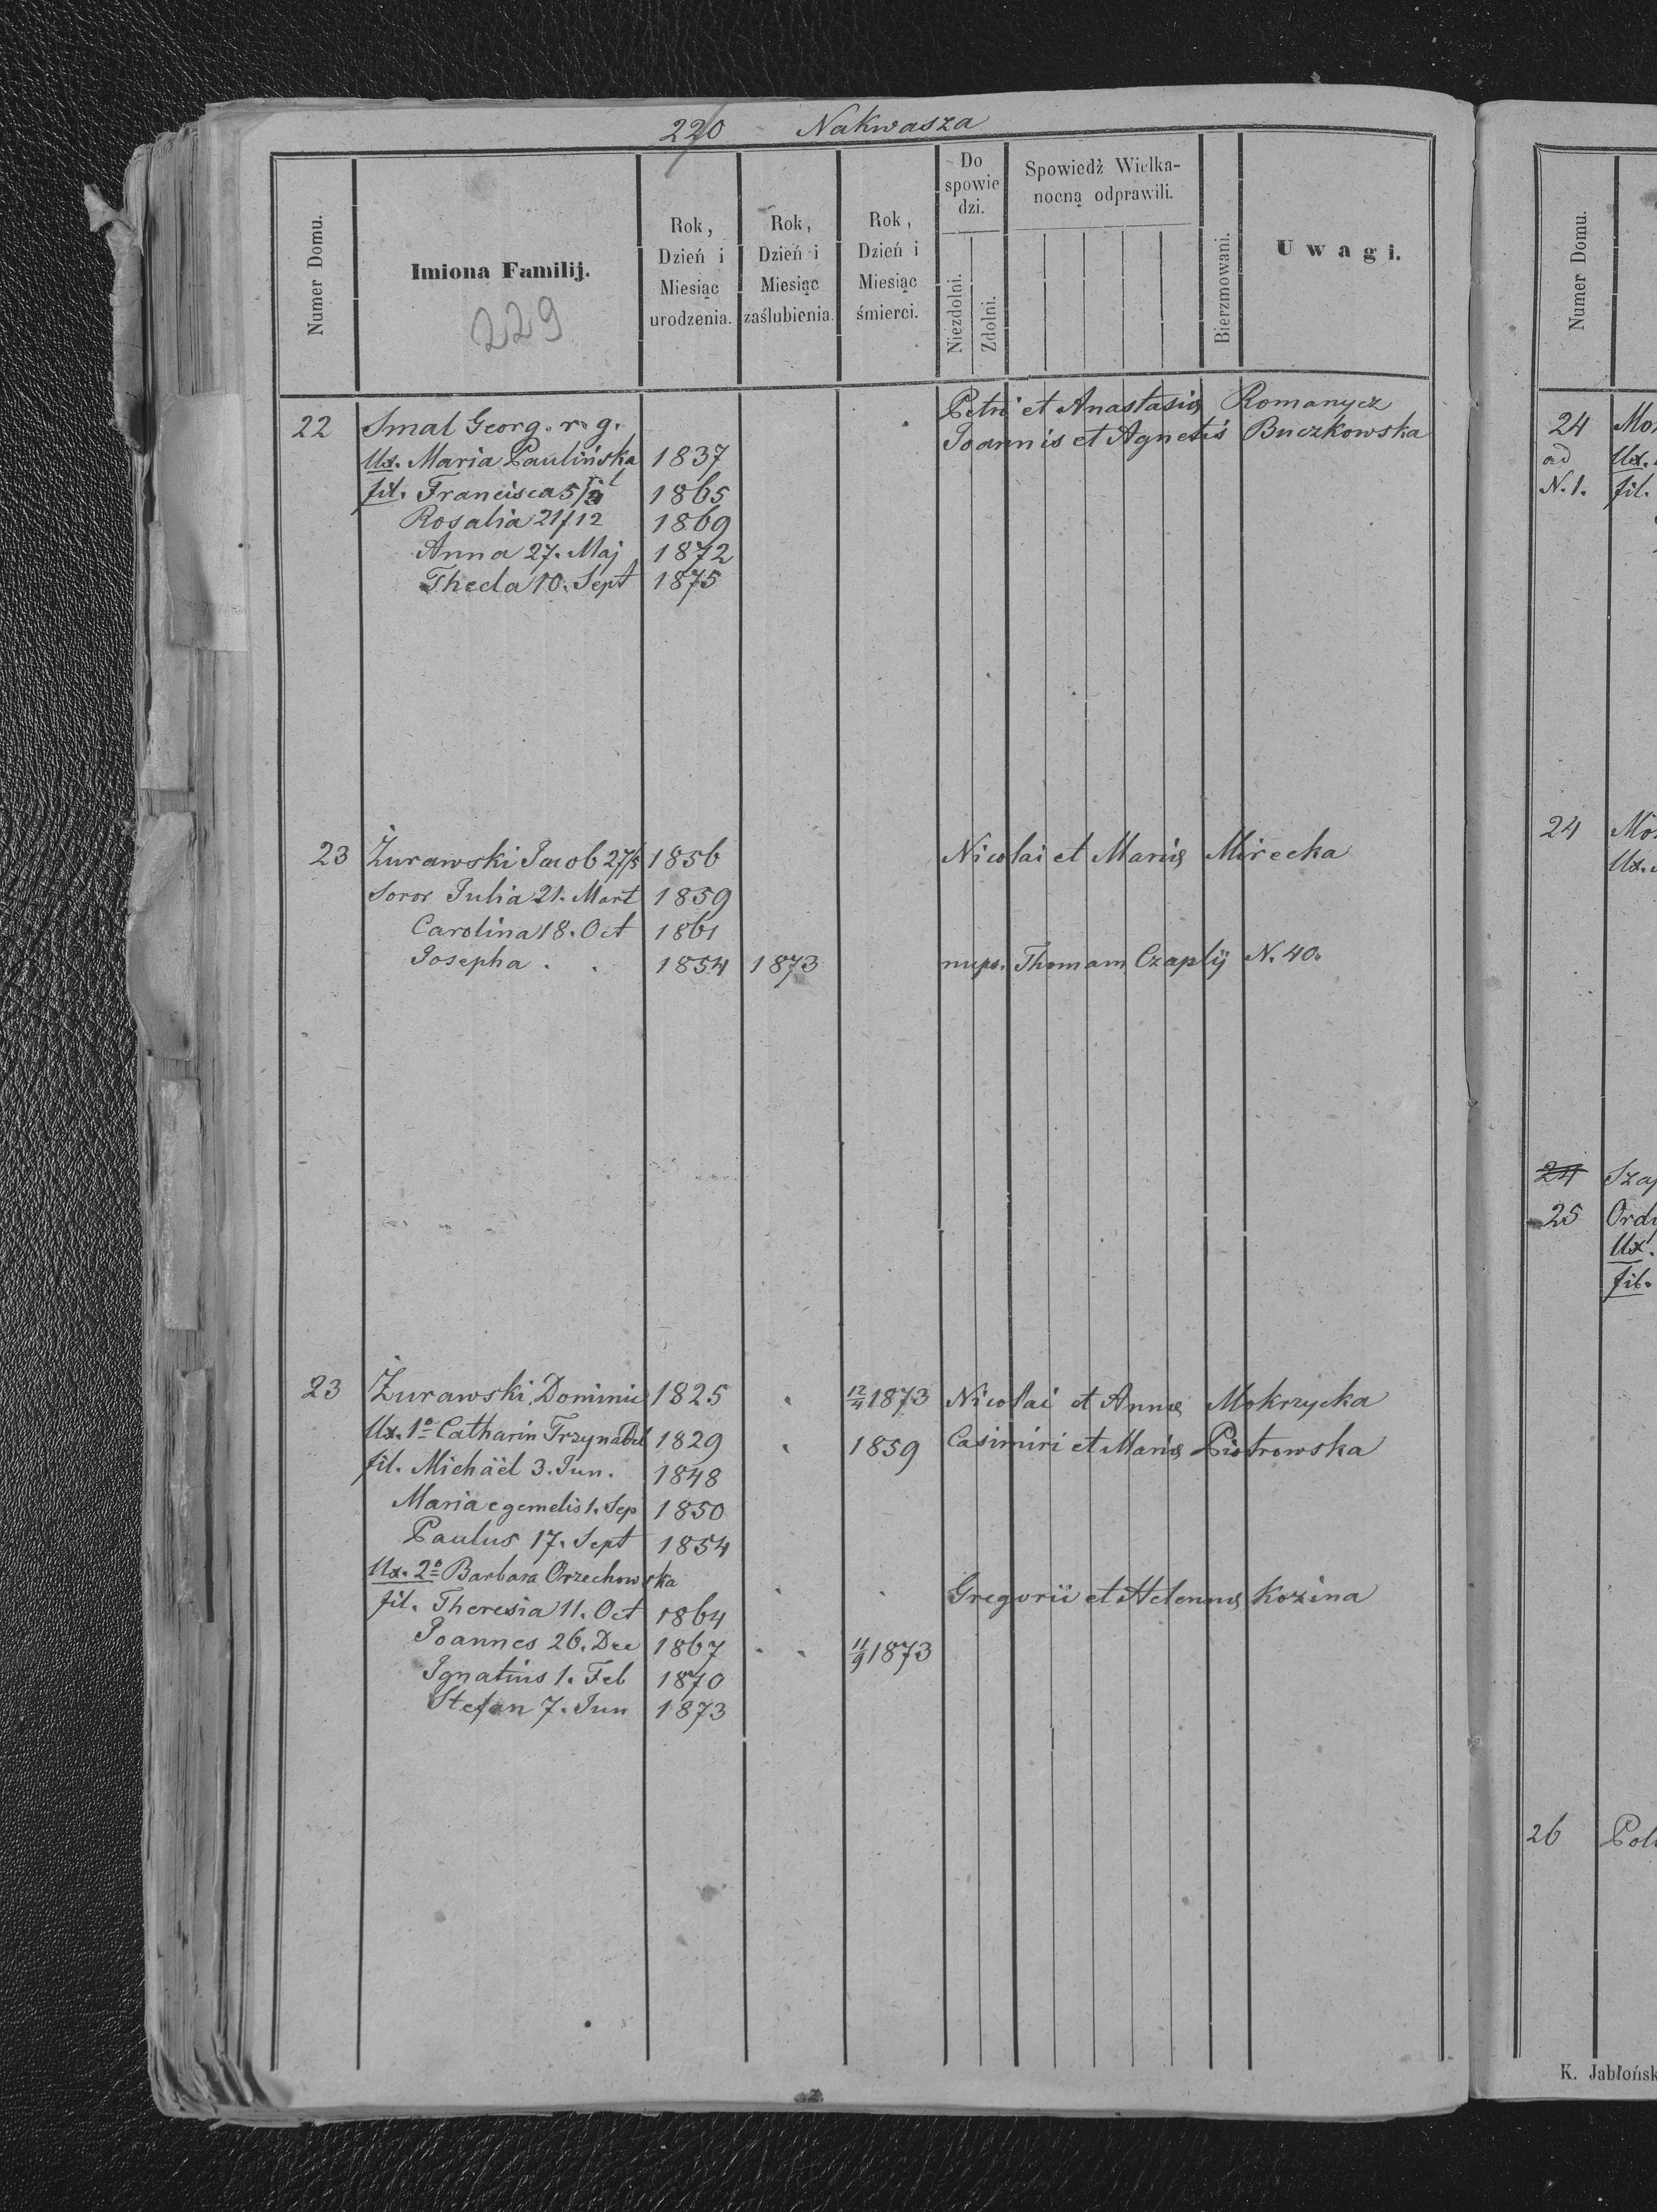 220 Nakwasza
Numer Domu.
Imiona Familij.
229
Rok, Dzień i Miesiąc urodzenia.
Rok, Dzień i Miesiąc zaślubienia.
Rok, Dzień i Miesiąc śmierci.
Do spowiedzi.
Niezdolni.
Zdolni.
Spowiedź Wielkanocną odprawili.
Bierzmowani.
Uwagi.
22 Smal Georg. r. g. Petri et Anastasiæ Romanycz
Ux. Maria Paulińska 1837 Joannis et Agnetis Buczkowska
fil. Francisca 1865
Rosalia 21/12 1869
Anna 27. Maj 1872
Thecla 10. Sept 1875
23 Żurawski Jacob 27/5 1856 Nicolai et Mariæ Mirecka
Soror Julia 21. Mart 1859
Carolina 18. Oct 1861
Josepha . . 1854 1873 nups. Thomam Czaplij N. 40.
23 Żurawski Dominic 1825 12/4 1873 Nicolai et Annæ Mokrzycka
Ux. 1º Catharin Trzynadel 1829 1859 Casimiri et Mariæ Piotrowska
fil. Michäel 3. Jun. 1848
Maria e gemelis 1. Sep 1850
Paulus 17. Sept 1854
Ux. 2º Barbara Orzechowska Gregorii et Helennæ Kozina
fil. Theresia 11. Oct 1864
Joannes 26. Dec 1867 11/9 1873
Ignatius 1. Feb 1870
Stefan 7. Jun 1873
Numer Domu.
24 Mo
ad Ux.
N. 1. fil.
24 Mo
Ux.
24 Sza
25 Ord
Ux.
fil.
26 Pol
K. Jabłońsk